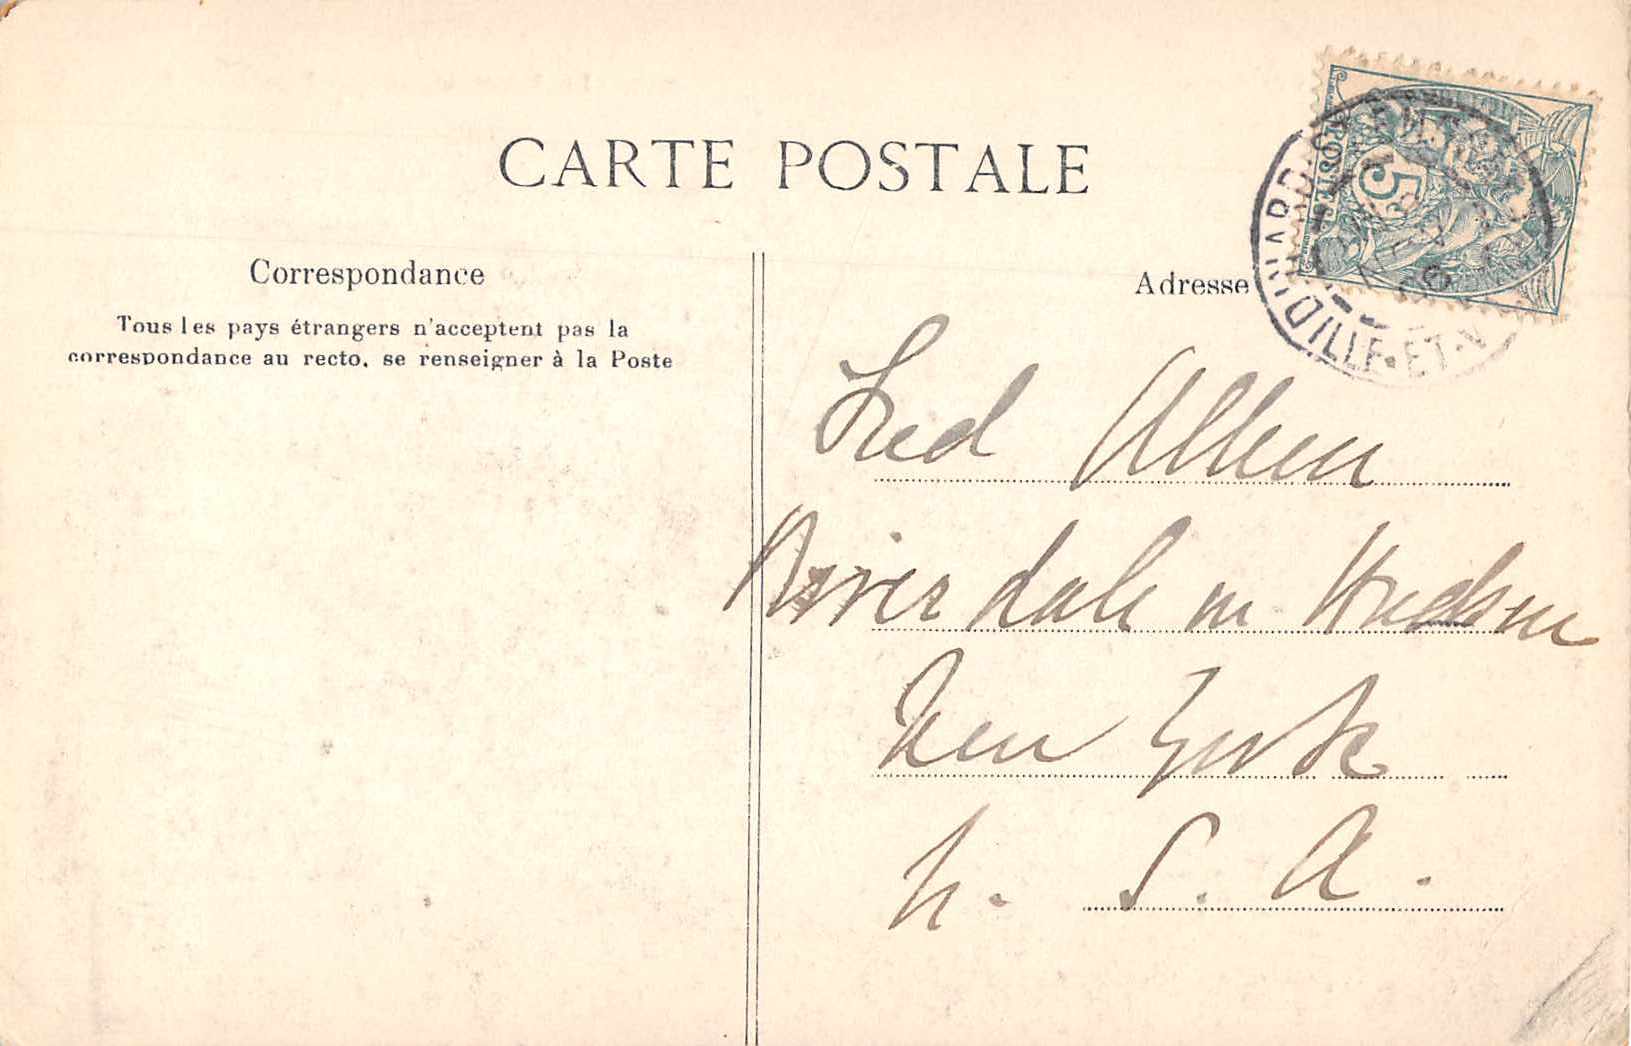 CARTE POSTALE
Correspondance
Tous les pays étrangers n'acceptent pas la
correspondance au recto, se renseigner à la Poste
Adresse
POSTES
5
DINARD
ILLE-ET-V
Fred Allien
Riverdale on Hudson
New York
U. S. A.